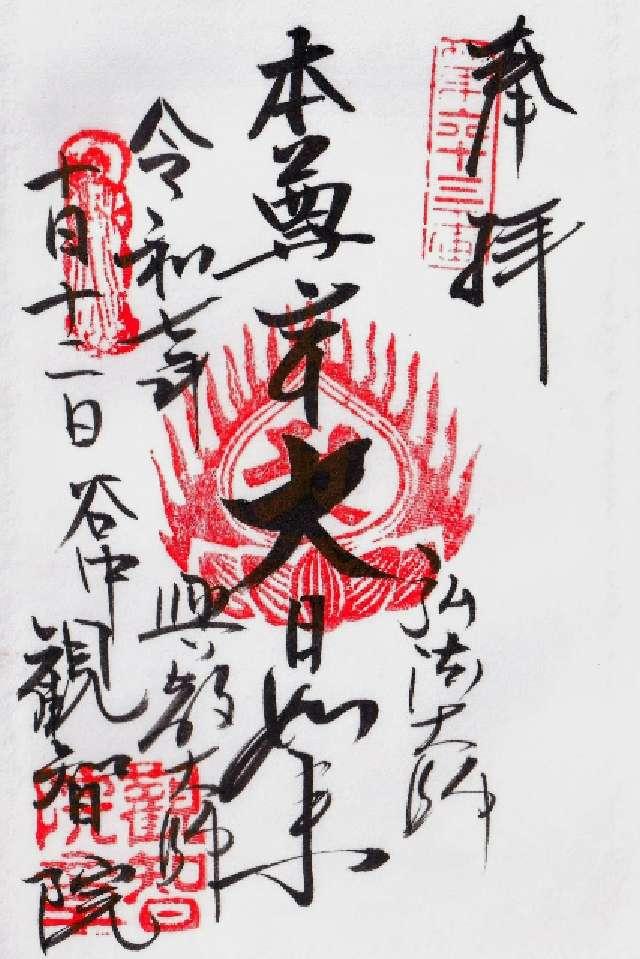 奉拝
弘法大師
本尊
大日如来
興教大師
令和七年
十月十二日
谷中
観智院